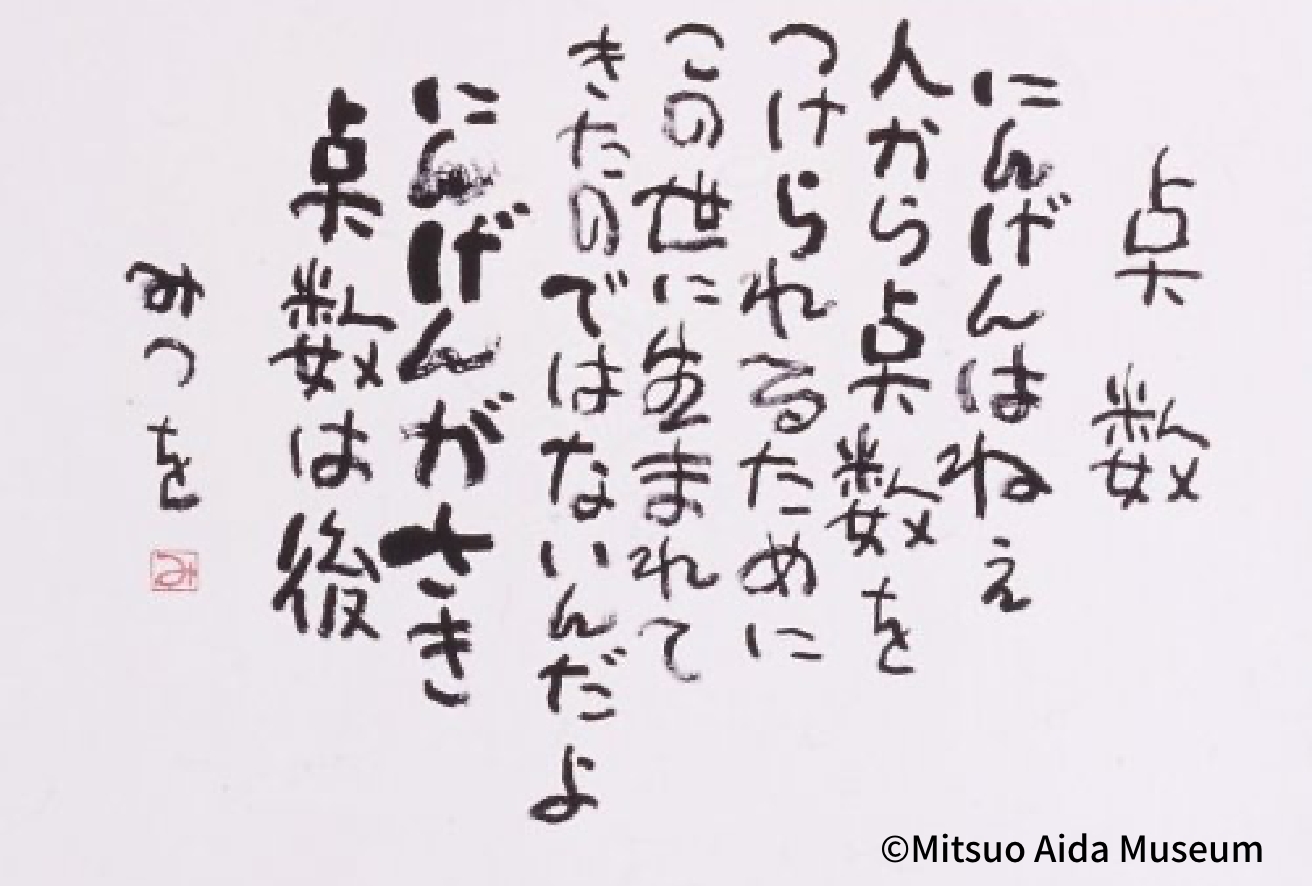 点数
にんげんはねぇ
人から点数を
つけられるために
この世に生まれて
きたのではないんだよ
にんげんがさき
点数は後
みつを
み
©Mitsuo Aida Museum